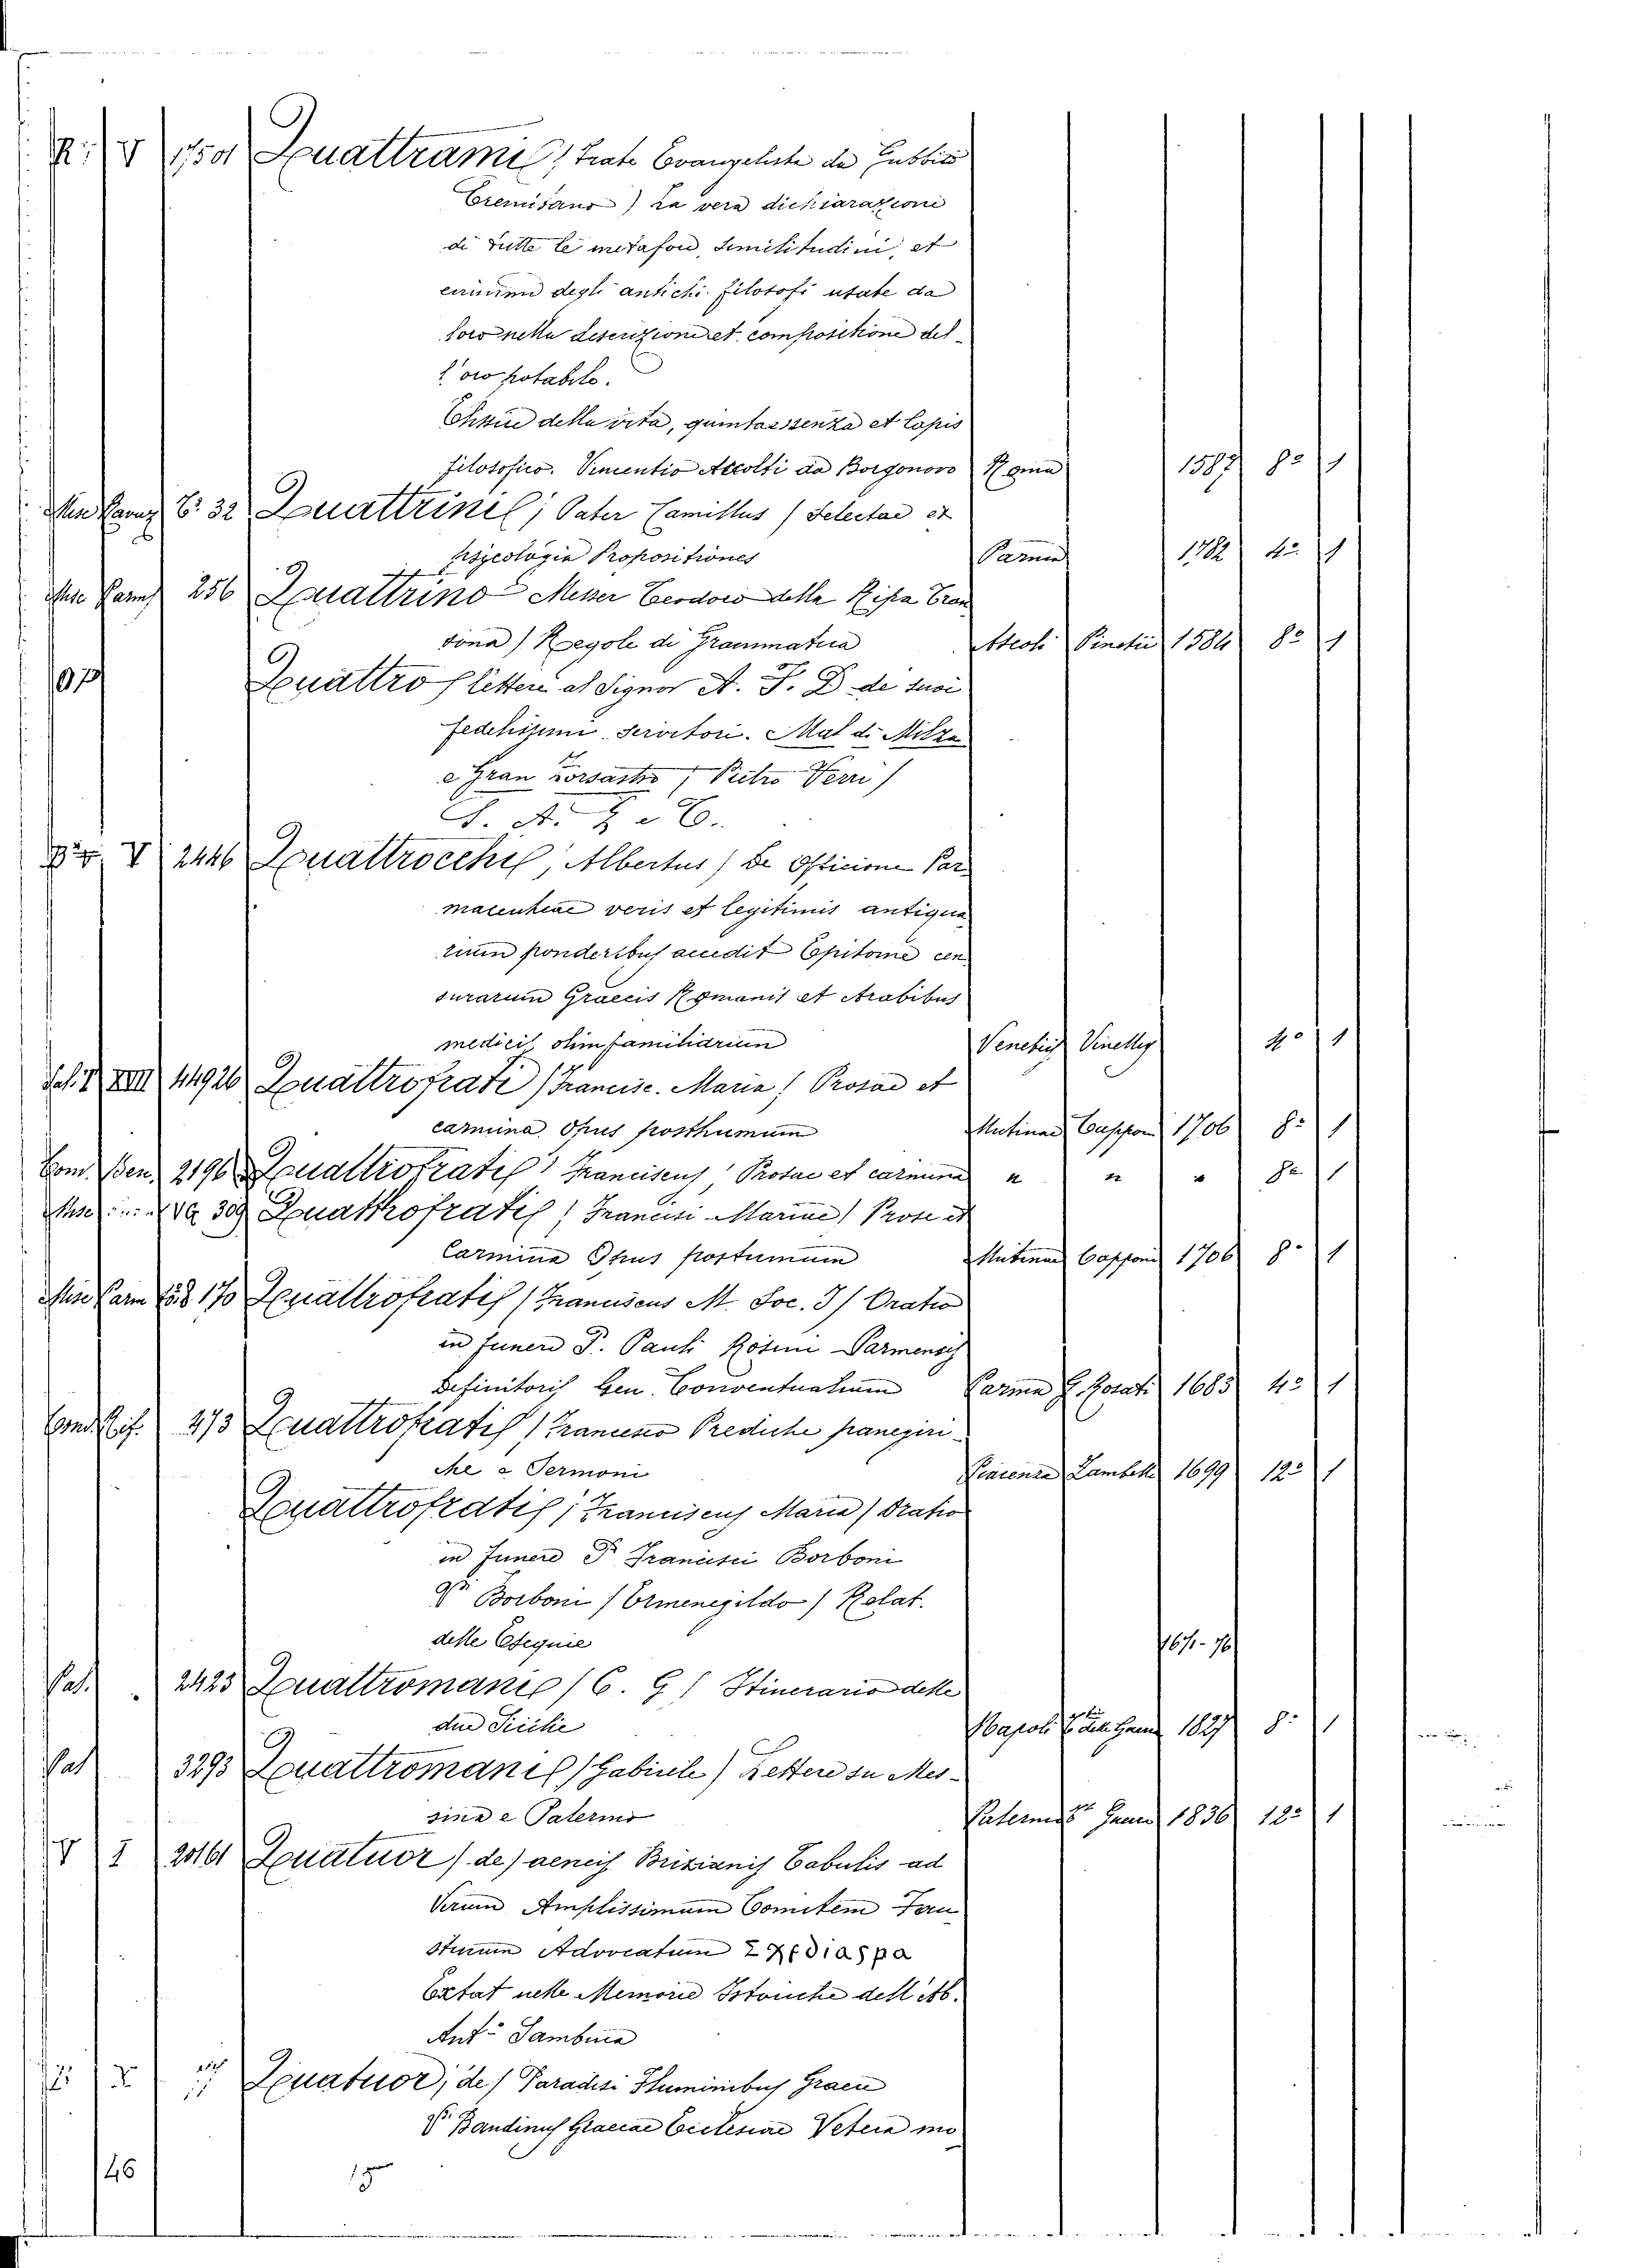 R. V 1501 Quattrami (Frate Evangelista da Gubbio
Eremitano) La vera dichiarazione
di tutte le metafore, similitudini, et
enimmi degli antichi filosofi usate da
loro nella descrizione et compositione del
l'oro potabile.
Elissire della vita, quintaessenza et lapis
filosofico. Vincentio Accolti da Borgonovo Roma 1587 8° 1
Misc Parm 6. 32 Quattrini (Pater Camillus) Selectae et
psycologia Propositiones Parma 1782 4° 1
Misc Parm 256 Quattrino Messer Teodoro della Ripa Tran
sona) Regole di Grammatica 1584 8° 1
Quattro lettere al Signor A. F. D de suoi
fedelissimi servitori. Mal di Milza
e Gran Zorsastro (Pietro Verri)
V 2446 Quattrocchi (Albertus) De Officione Par
macenticae veris et legitimis antiqua
rium ponderibus accedit Epitome cen
surarum Graecis Romanis et Arabibus
medicis olim familiarium Venetiis 4° 1
Sal. V XVIII 44926 Quattrofrati (Francisc. Maria) Prosae et
carmina Opus posthumum Mutinae Cappon 1706 8° 1
Com. Ben. 2196 Quattrofratis (Franciscus) Prosae et carmina " " " 8° 1
Misc 309 Quattrofratis (Francisi Mariae) Prose et
Carmina Opus postumum Mutinae Capponi 1706 8° 1
Misc Parm 170 Quattrofratis (Franciscus M. Soc. J) Oratio
in funere P. Pauli Rosini Parmensis
Definitoris Gen. Conventualium Parma G. Rosati 1685 4° 1
473 Quattrofratis (Francesco Prediche panegiri-
che e Sermoni Piacenza Zambelli 1699 12° 1
Quattrofratis (Franciscus Maria) Oratio
in Funere P. Francisci Borboni
Borboni (Ermenegildo) Relat.
delle Esequie 1671-76
Pal. 2423 Quattromani (G. G) Itinerario delle
due Sicilie Napoli 1827 8° 1
Pal 3293 Quattromani (Gabriele) Lettere su Mes-
sina e Palermo Palermo 1836 12° 1
V I 20161 Quatuor (de) aeneis Brixianis Tabulis ad
Virum Amplissimum Comitem Fau
stinum Advocatum
Extat nelle Memorie Istoriche dell Ab.
Ant° Sambuca
Quatuor (de) Paradisi Fluminibus Graece
V. Bandinus Graecae Ecclesiae Vetera mo
46
15